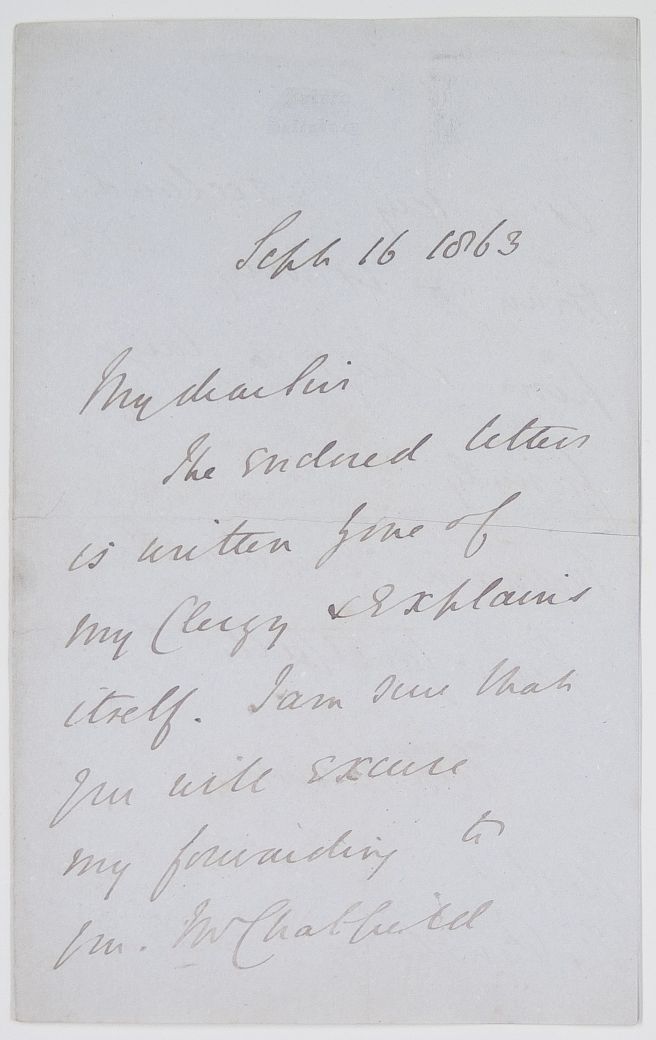 Sept 16 1863
My dear Sir
The enclosed letter
is written by one of
my Clergy & Explains
itself. I am sure that
you will excuse
my forwarding to
you. Mr Chatfield